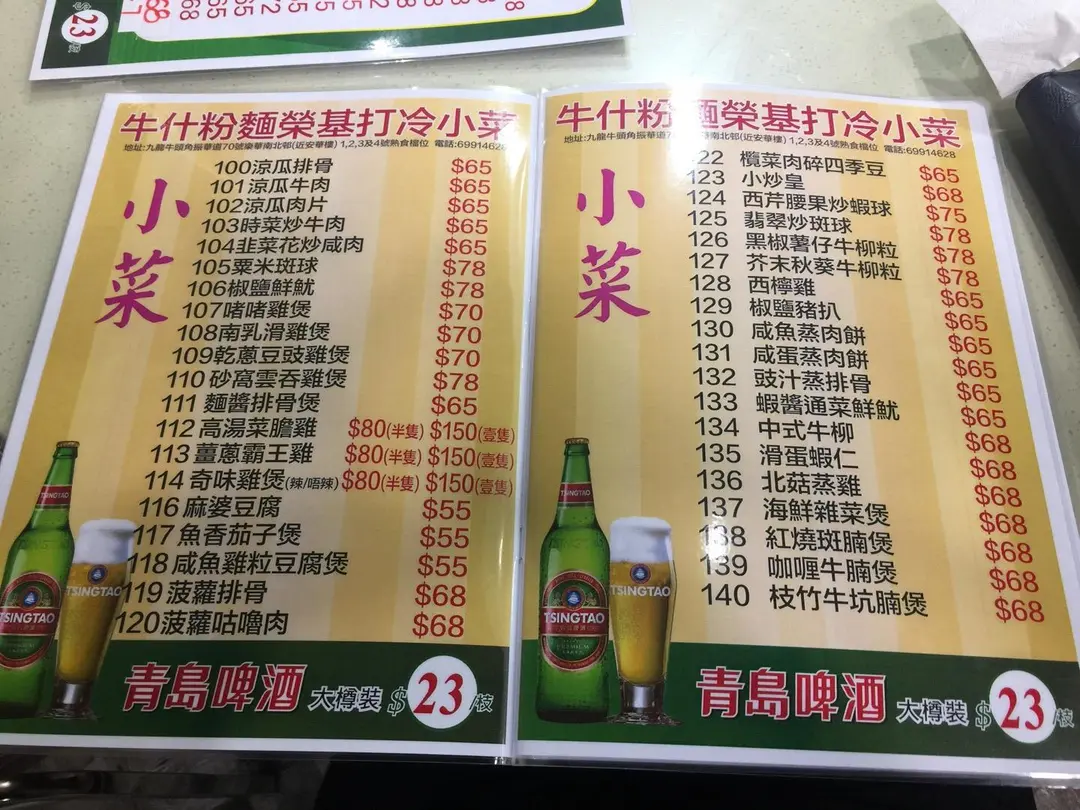 $23
牛什粉麵榮基打冷小菜
地址:九龍牛頭角振華道70號樂華南北邨(近安華樓) 1,2,3及4號熟食檔位 電話:69914628
小菜
100涼瓜排骨 $65
101涼瓜牛肉 $65
102涼瓜肉片 $65
103時菜炒牛肉 $65
104韭菜花炒咸肉 $65
105粟米斑球 $78
106椒鹽鮮魷 $78
107啫啫雞煲 $70
108南乳滑雞煲 $70
109乾蔥豆豉雞煲 $70
110砂窩雲吞雞煲 $78
111麵醬排骨煲 $65
112高湯菜膽雞 $80(半隻) $150(壹隻)
113薑蔥霸王雞 $80(半隻) $150(壹隻)
114奇味雞煲(辣/唔辣) $80(半隻) $150(壹隻)
116麻婆豆腐 $55
117魚香茄子煲 $55
118咸魚雞粒豆腐煲 $55
119菠蘿排骨 $68
120菠蘿咕嚕肉 $68
TSINGTAO
TSINGTAO
TSINGTAO
青島啤酒 大樽裝 $23/枝
牛什粉麵榮基打冷小菜
地址:九龍牛頭角振華道70號樂華南北邨(近安華樓) 1,2,3及4號熟食檔位 電話:69914628
小菜
122 欖菜肉碎四季豆 $65
123 小炒皇 $68
124 西芹腰果炒蝦球 $75
125 翡翠炒斑球 $78
126 黑椒薯仔牛柳粒 $78
127 芥末秋葵牛柳粒 $78
128 西檸雞 $65
129 椒鹽豬扒 $65
130 咸魚蒸肉餅 $65
131 咸蛋蒸肉餅 $65
132 豉汁蒸排骨 $65
133 蝦醬通菜鮮魷 $65
134 中式牛柳 $68
135 滑蛋蝦仁 $68
136 北菇蒸雞 $68
137 海鮮雜菜煲 $68
138 紅燒斑腩煲 $68
139 咖喱牛腩煲 $68
140 枝竹牛坑腩煲 $68
TSINGTAO
TSINGTAO
TSINGTAO
青島啤酒 大樽裝 $23/枝